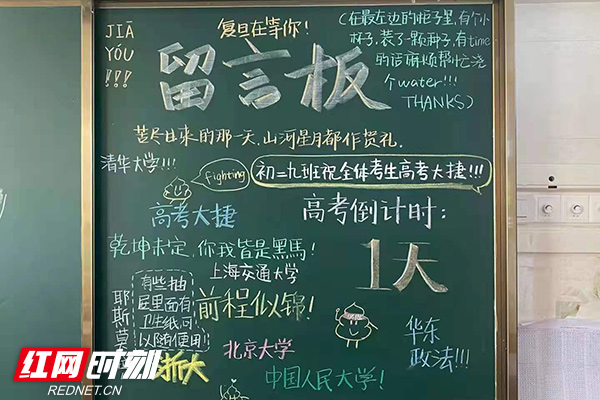 JIĀ
YÓU
!!!
复旦在等你!
(在最左边的柜子里,有个小
杯子,装了一颗种子,有time
的话麻烦帮忙浇
个water!!!
THANKS)
留言板
苦尽甘来的那一天,山河星月都作贺礼.
清华大学!!!
fighting
初一九班祝全体考生高考大捷!!!
高考大捷
高考倒计时:
1天
乾坤未定,你我皆是黑馬!
上海交通大学
有些抽
屉里面有
卫生纸,可
以随便用!
耶斯莫
前程似锦!
北京大学
华东
政法!!!
浙大
中国人民大学!
红网时刻
REDNET.CN